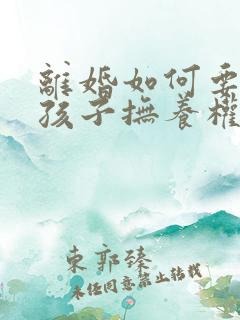 離婚如何要
孩子撫養權
東郭臻
未經同意禁止轉載